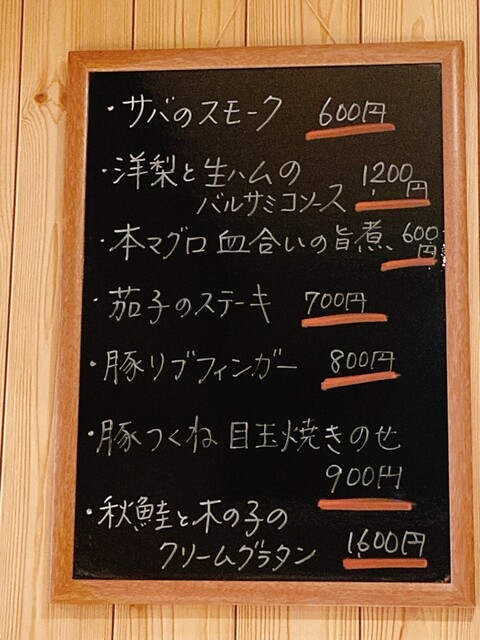 ・サバのスモーク 600円
・洋梨と生ハムの
バルサミコソース 1200円
・本マグロ血合いの旨煮、600円
・茄子のステーキ 700円
・豚リブフィンガー 800円
・豚つくね目玉焼きのせ
900円
・秋鮭と木の子の
クリームグラタン 1,600円